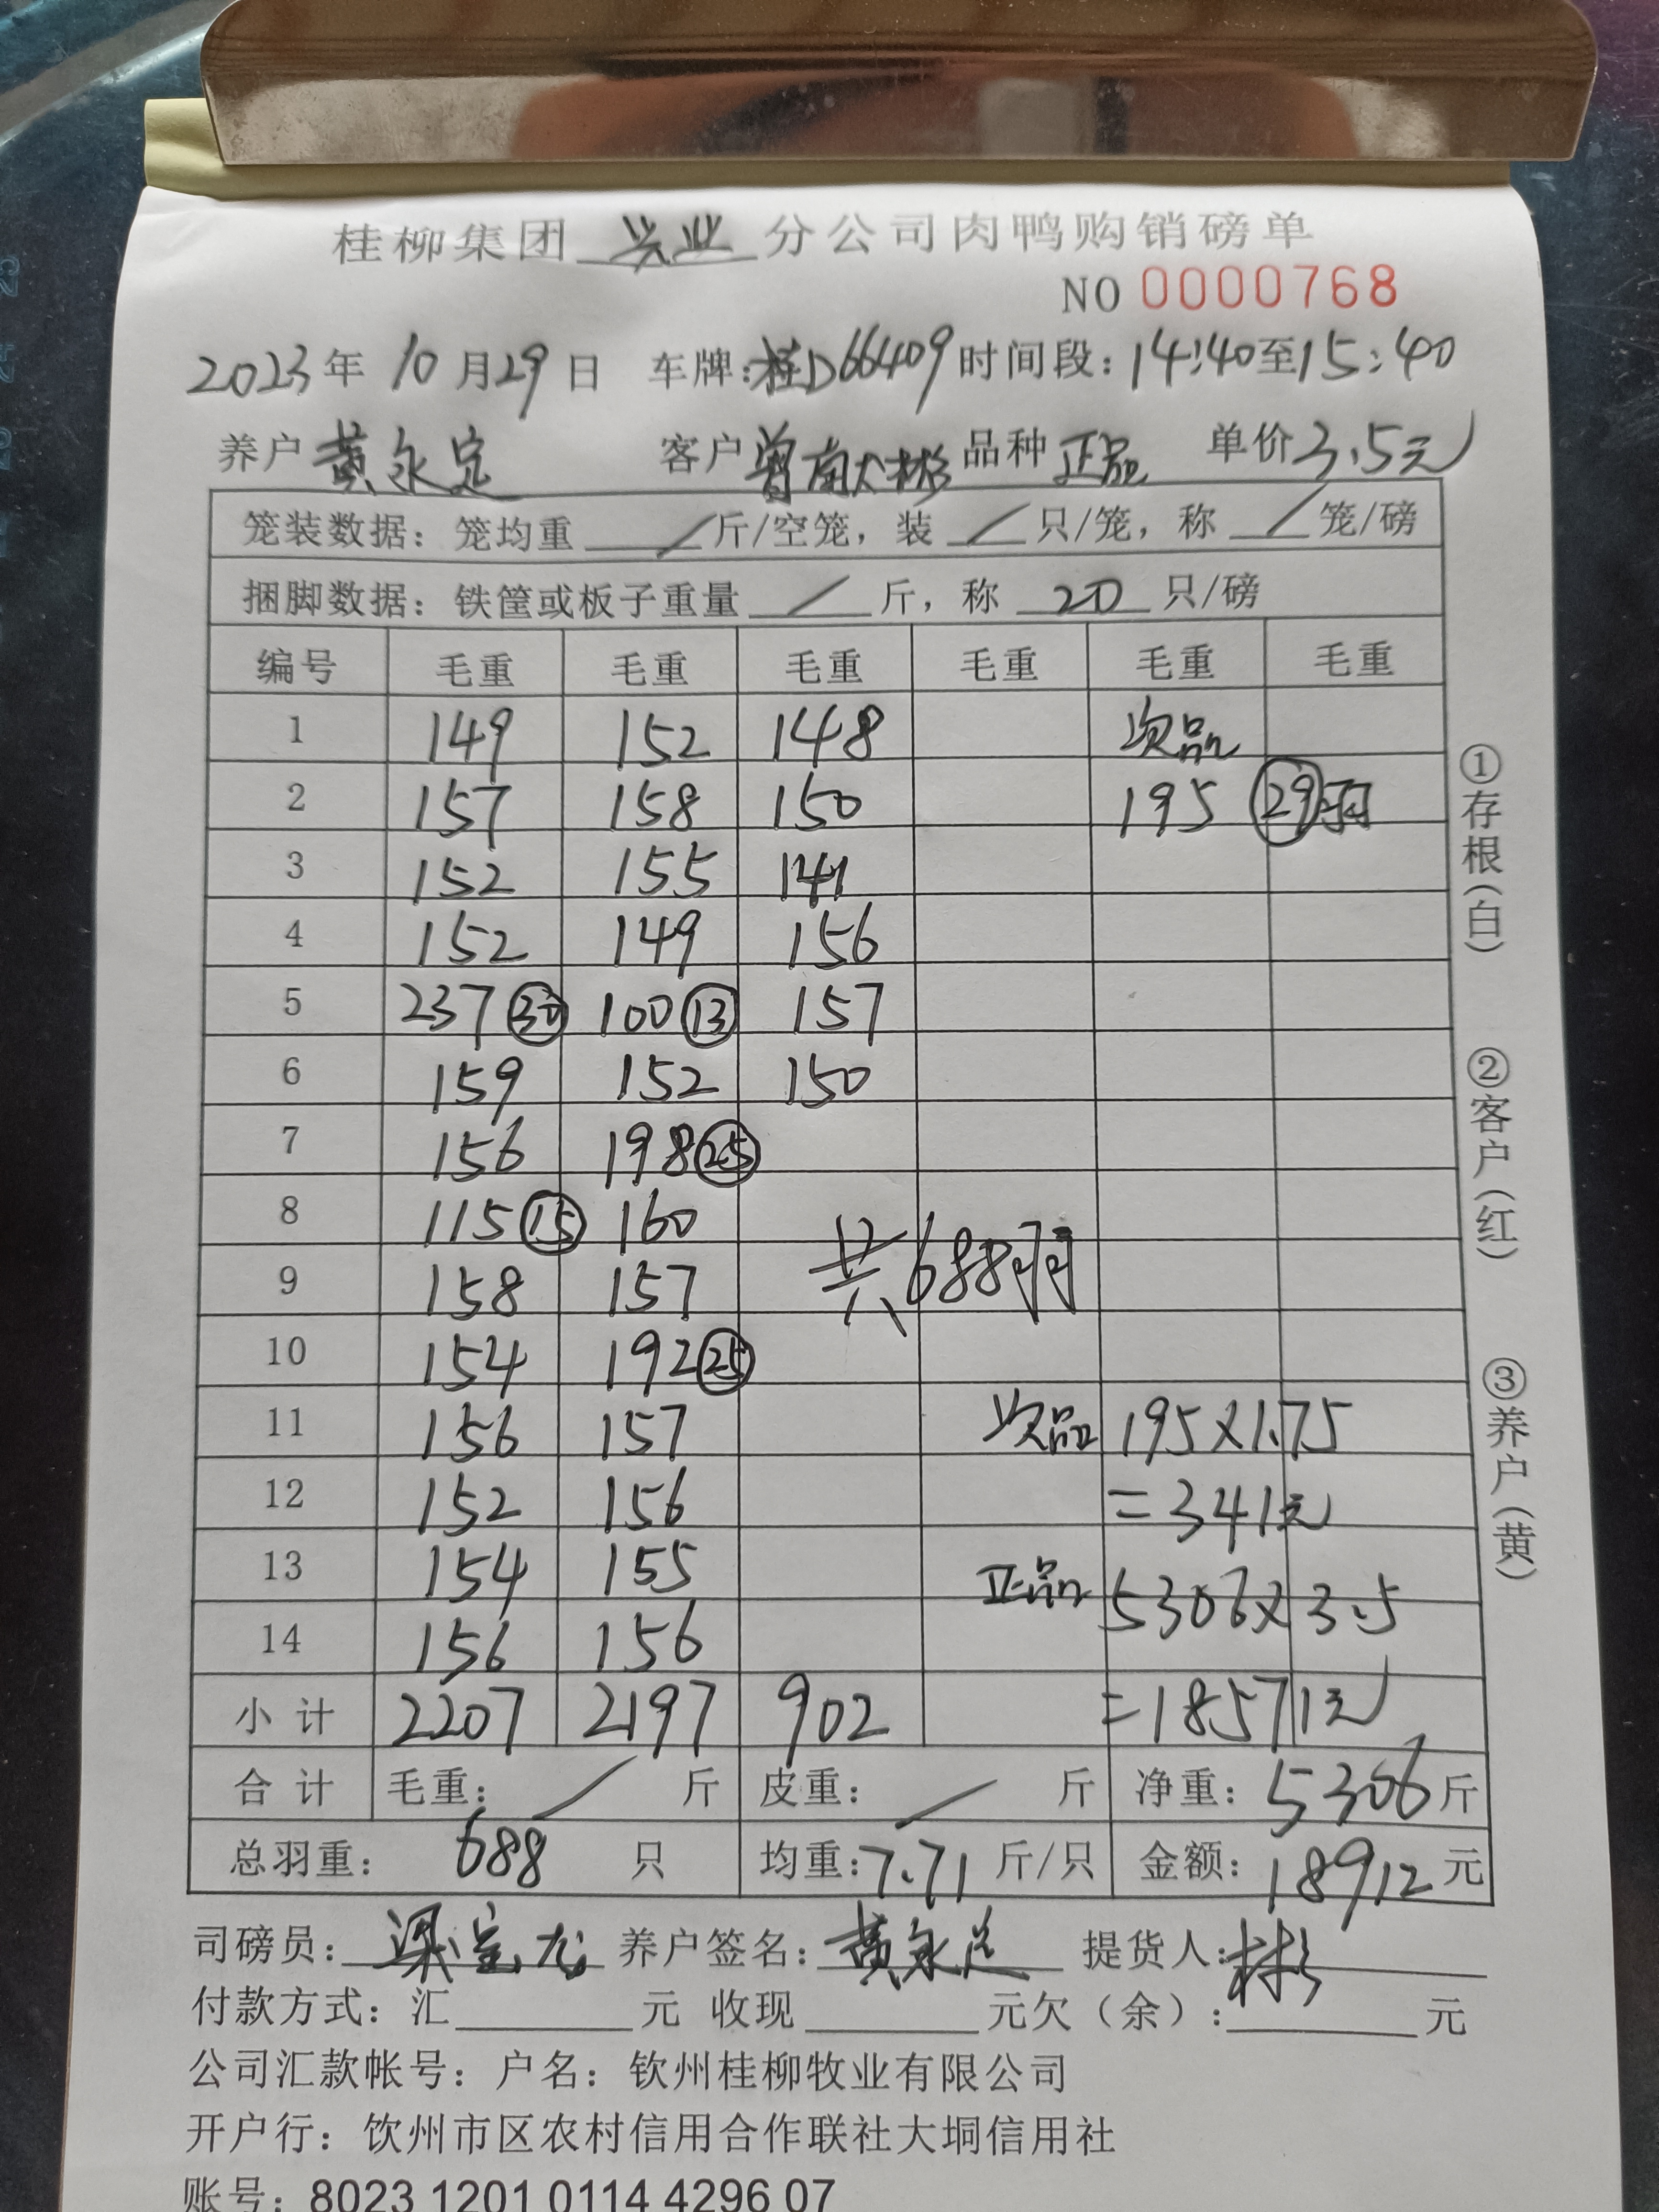 桂柳集团 兴业 分公司肉鸭购销磅单
NO 0000768
2023年 10月29日 车牌:桂D66409 时间段:14:40至15:40
养户 黄永定 客户 曾南大彬 品种 正品 单价3.5元
笼装数据:笼均重 / 斤/空笼,装 / 只/笼,称 / 笼/磅
捆脚数据:铁筐或板子重量 / 斤,称 20 只/磅
编号 毛重 毛重 毛重 毛重 毛重 毛重
1 149 152 148 次品
2 157 158 150 195 29羽
3 152 155 141
4 152 149 156
5 237 30 100 13 157
6 159 152 150
7 156 198 25
8 115 15 160
9 158 157 共688羽
10 154 192 25
11 156 157 次品 195×1.75
12 152 156 =341元
13 154 155 正品 5306×3.5
14 156 156
小计 2207 2197 902 =18571元
合计 毛重: / 斤 皮重: / 斤 净重:5306斤
总羽重: 688 只 均重:7.71 斤/只 金额:18912元
司磅员:梁宝龙 养户签名:黄永定 提货人:彬
付款方式:汇 元 收现 元欠(余): 元
公司汇款帐号:户名:钦州桂柳牧业有限公司
开户行:钦州市区农村信用合作联社大垌信用社
账号:8023 1201 0114 4296 07
①存根(白) ②客户(红) ③养户(黄)